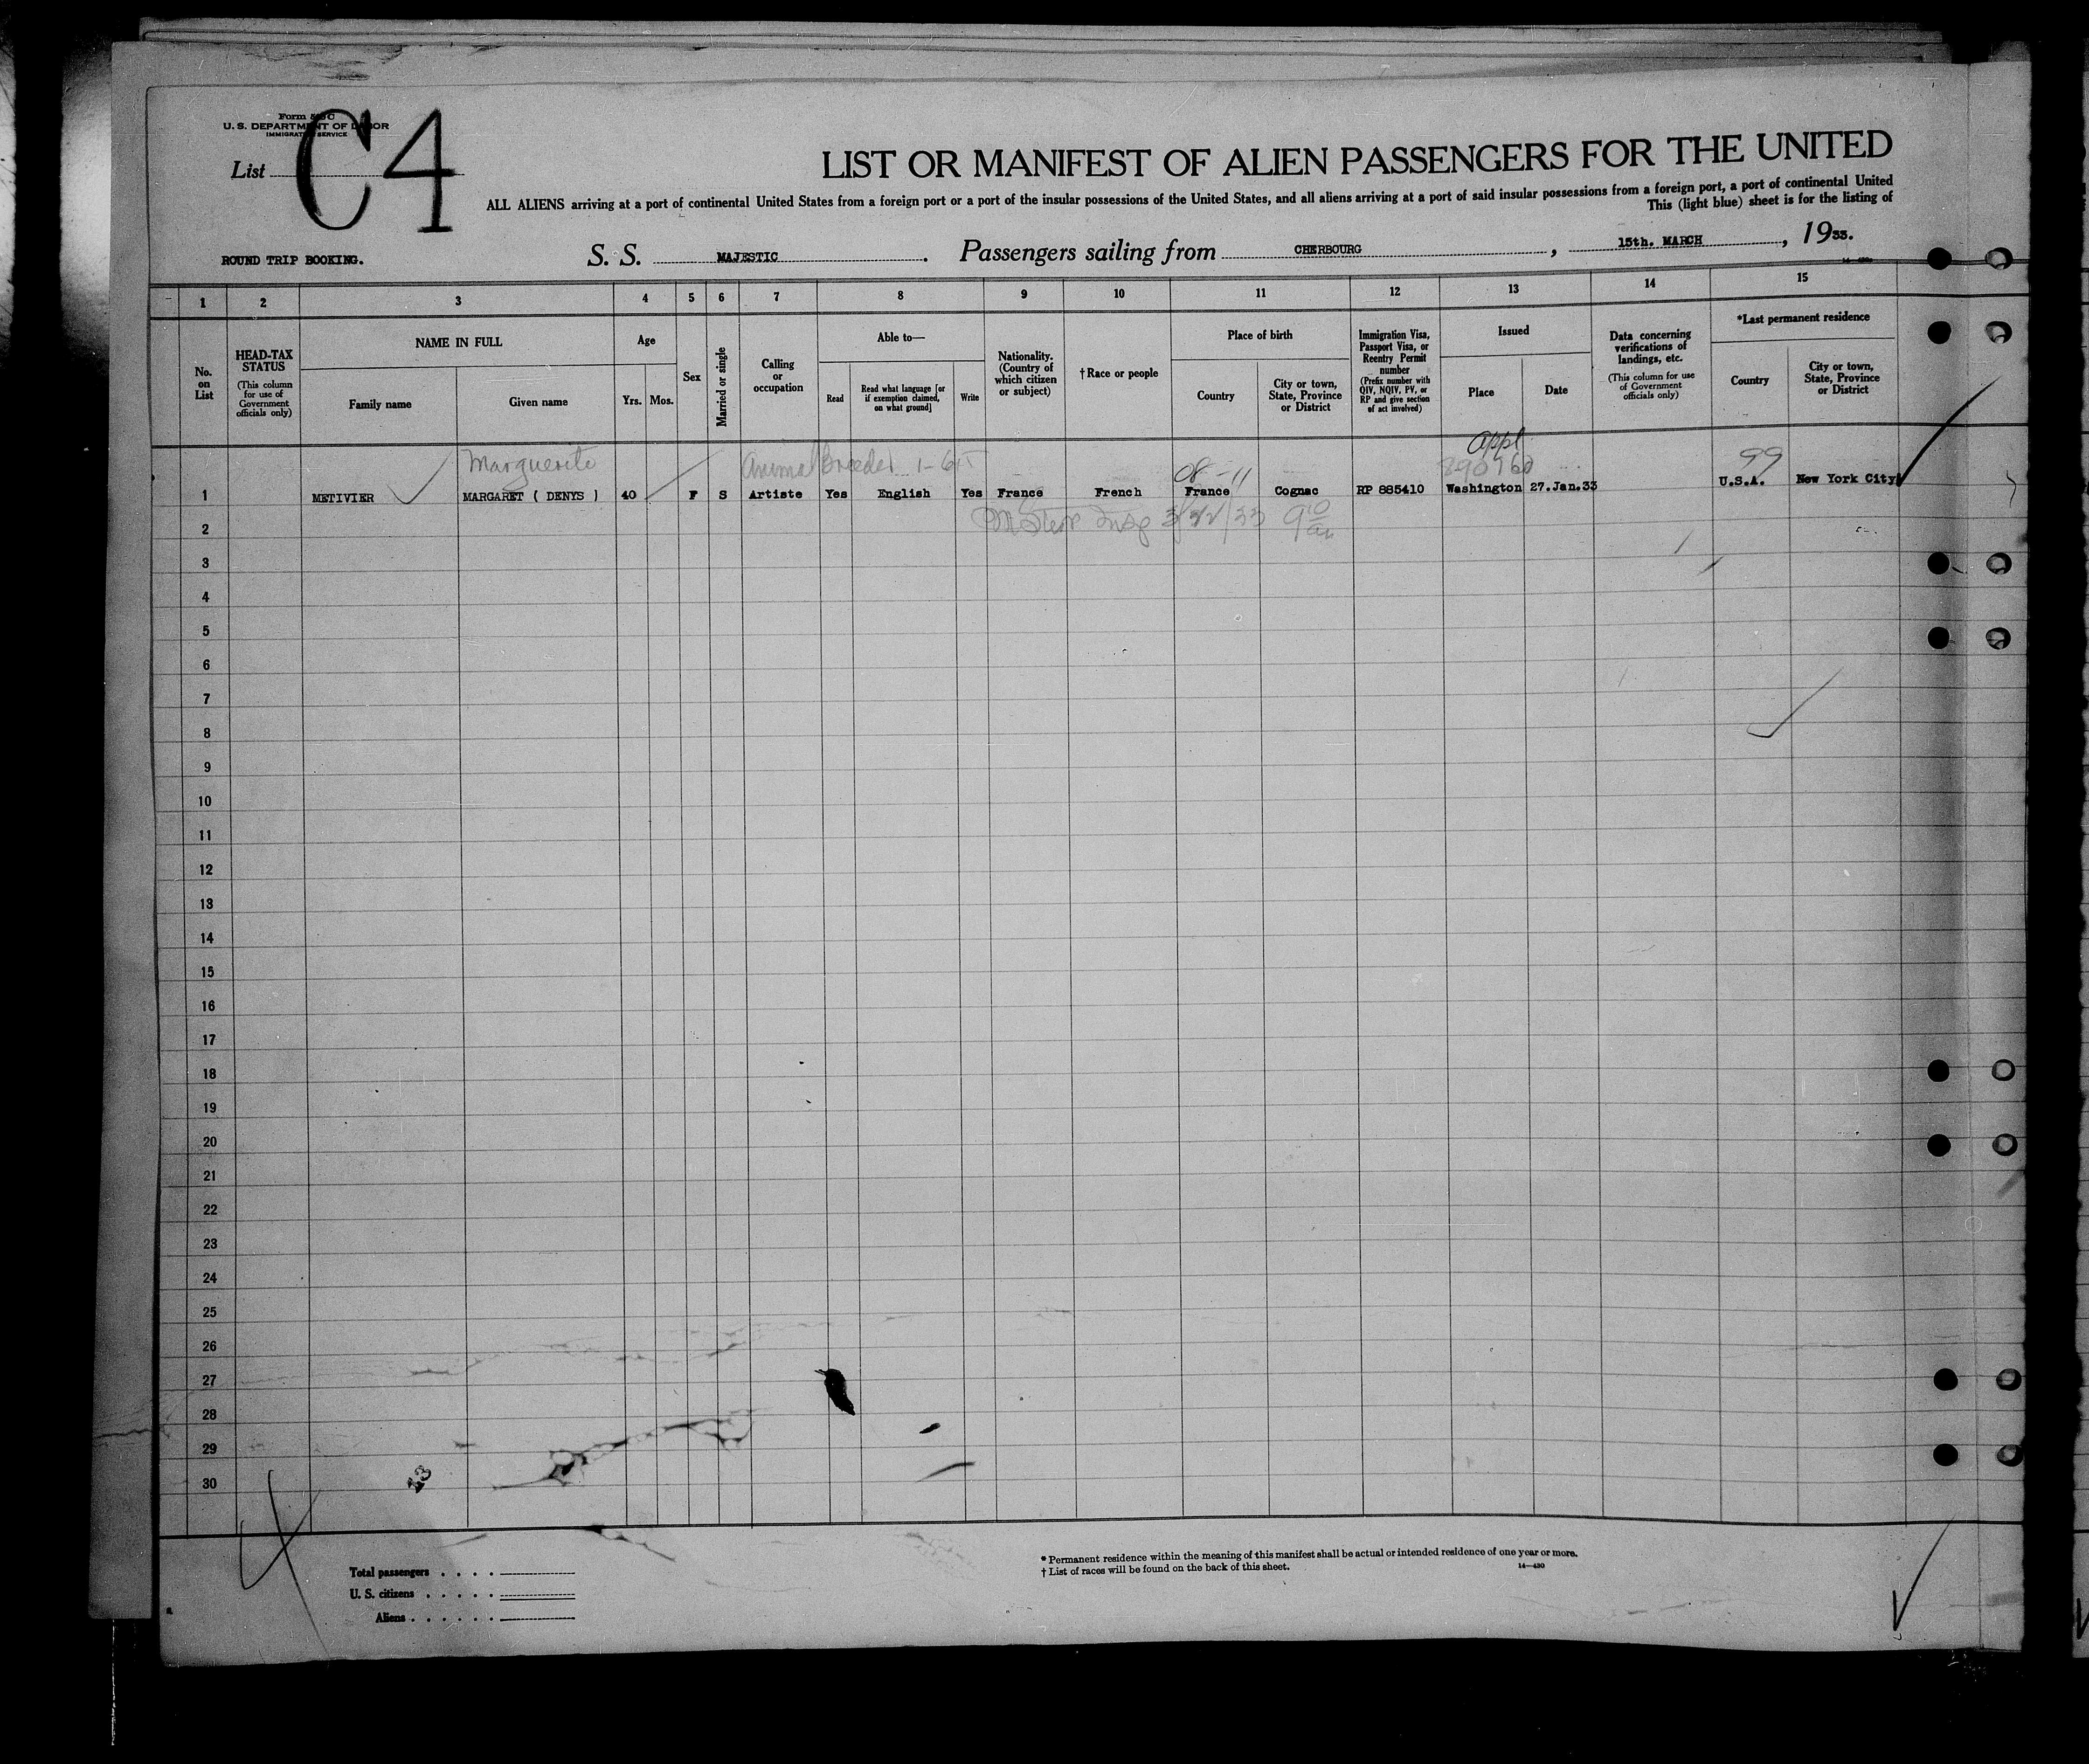 Form 500 C
U. S. DEPARTMENT OF LABOR
IMMIGRATION SERVICE
List C4
LIST OR MANIFEST OF ALIEN PASSENGERS FOR THE UNITED
ALL ALIENS arriving at a port of continental United States from a foreign port or a port of the insular possessions of the United States, and all aliens arriving at a port of said insular possessions from a foreign port, a port of continental United
This (light blue) sheet is for the listing of
ROUND TRIP BOOKING.
S. S. MAJESTIC. Passengers sailing from CHERBOURG, 15th. MARCH, 1933.
1 2 3 4 5 6 7 8 9 10 11 12 13 14 15
No. on List
HEAD-TAX STATUS
(This column for use of Government officials only)
NAME IN FULL
Family name
Given name
Age
Yrs. Mos.
Sex
Married or single
Calling or occupation
Able to—
Read
Read what language [or if exemption claimed, on what ground]
Write
Nationality. (Country of which citizen or subject)
†Race or people
Place of birth
Country
City or town, State, Province or District
Immigration Visa, Passport Visa, or Reentry Permit number
(Prefix number with QIV, NQIV, PV, or RP and give section of act involved)
Issued
Place
Date
Data concerning verifications of landings, etc.
(This column for use of Government officials only)
*Last permanent residence
Country
City or town, State, Province or District
Appl
Marguerite Animal Breeder 08-11 99
1 METIVIER MARGARET ( DENYS ) 40 F S Artiste Yes English Yes France French France Cognac RP 885410 Washington 27.Jan.33 U.S.A. New York City
2 Insp 3/22/33
3
4
5
6
7
8
9
10
11
12
13
14
15
16
17
18
19
20
21
22
23
24
25
26
27
28
29
30
43
Total passengers
U. S. citizens
Aliens
* Permanent residence within the meaning of this manifest shall be actual or intended residence of one year or more.
† List of races will be found on the back of this sheet.
14—430